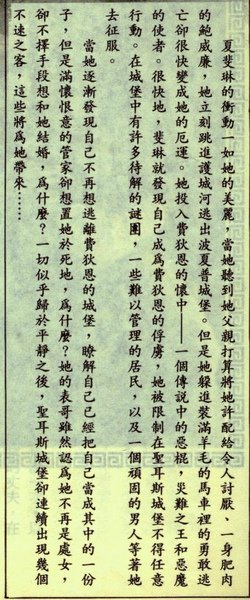 夏斐琳的衝動一如她的美麗，當她聽到她父親打算將她許配給令人討厭、一身肥肉
的鮑威廉，她立刻跳進護城河逃出波夏普城堡。但是她躲進裝滿羊毛的馬車裡的勇敢逃
亡卻很快變成她的厄運。她投入費狄恩的懷中——一個傳說中的惡棍，災難之王和惡魔
的使者。很快地，斐琳就發現自己成為費狄恩的俘虜，她被限制在聖耳斯城堡不得任意
行動。在城堡中有許多待解的謎團，一些難以管理的居民，以及一個頑固的男人等著她
去征服。
當她逐漸發現自己不再想逃離費狄恩的城堡，瞭解自己已經把自己當成其中的一份
子，但是滿懷恨意的管家卻想置她於死地，為什麼？她的表哥雖然認為她不再是處女，
卻不擇手段想和她結婚，為什麼？一切似乎歸於平靜之後，聖耳斯城堡卻連續出現幾個
不速之客，這些將為她帶來……